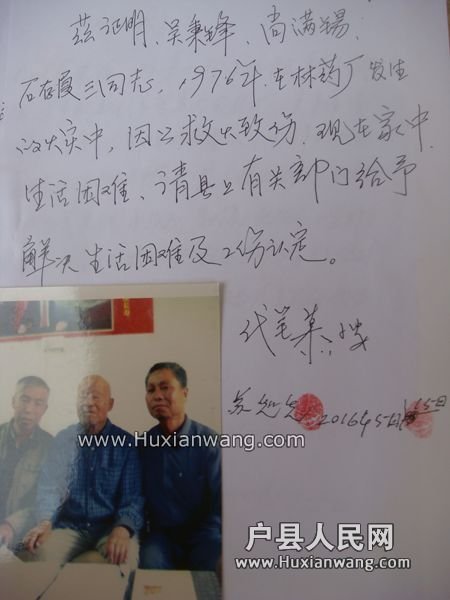 兹证明、吴秉峰、尚满锡、
石存霞三同志，1976年在林药厂发生
的火灾中，因公救火致伤，现在家中
生活困难、请县上有关部门给予
解决生活困难及工伤认定。
代笔
2016年5月15日
www.Huxianwang.com
户县人民网
www.Huxianwang.com